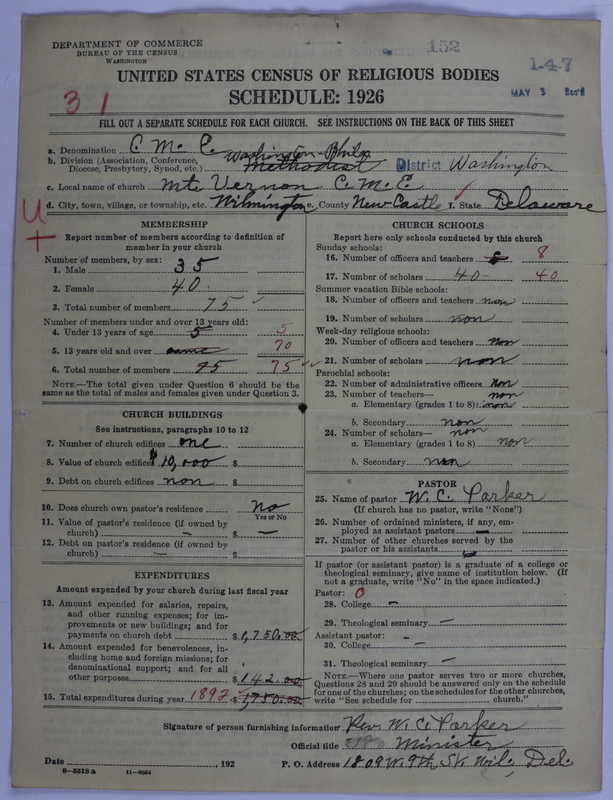 DEPARTMENT OF COMMERCE
BUREAU OF THE CENSUS
WASHINGTON
152
147
UNITED STATES CENSUS OF RELIGIOUS BODIES
SCHEDULE: 1926
MAY 3 Rec'd
31
FILL OUT A SEPARATE SCHEDULE FOR EACH CHURCH. SEE INSTRUCTIONS ON THE BACK OF THIS SHEET
a. Denomination C. M. E.
b. Division (Association, Conference, Diocese, Presbytery, Synod, etc.) Washington-Phila Methodist District Washington
c. Local name of church Mt. Vernon C. M. E.
d. City, town, village, or township, etc. Wilmington e. County New-Castle f. State Delaware
U
MEMBERSHIP
Report number of members according to definition of
member in your church
Number of members, by sex:
1. Male 35
2. Female 40
3. Total number of members 75
Number of members under and over 13 years old:
4. Under 13 years of age 5 5
5. 13 years old and over same 70
6. Total number of members 75 75
NOTE.—The total given under Question 6 should be the
same as the total of males and females given under Question 3.
CHURCH BUILDINGS
See instructions, paragraphs 10 to 12
7. Number of church edifices one
8. Value of church edifices $10,000 $
9. Debt on church edifices non $
10. Does church own pastor's residence No
Yes or No
11. Value of pastor's residence (if owned by
church) — $ —
12. Debt on pastor's residence (if owned by
church) — $
EXPENDITURES
Amount expended by your church during last fiscal year
13. Amount expended for salaries, repairs,
and other running expenses; for im-
provements or new buildings; and for
payments on church debt $1,750.00
14. Amount expended for benevolences, in-
cluding home and foreign missions; for
denominational support; and for all
other purposes $142.00
15. Total expenditures during year 1892 $1,750.00
CHURCH SCHOOLS
Report here only schools conducted by this church
Sunday schools:
16. Number of officers and teachers 8 8
17. Number of scholars 40 40
Summer vacation Bible schools:
18. Number of officers and teachers non
19. Number of scholars non
Week-day religious schools:
20. Number of officers and teachers non
21. Number of scholars non
Parochial schools:
22. Number of administrative officers non
23. Number of teachers— non
a. Elementary (grades 1 to 8) non
b. Secondary non
24. Number of scholars— non
a. Elementary (grades 1 to 8) non
b. Secondary non
PASTOR
25. Name of pastor W. C. Parker
(If church has no pastor, write "None")
26. Number of ordained ministers, if any, em-
ployed as assistant pastors —
27. Number of other churches served by the
pastor or his assistants
If pastor (or assistant pastor) is a graduate of a college or
theological seminary, give name of institution below. (If
not a graduate, write "No" in the space indicated.)
Pastor: 0
28. College —
29. Theological seminary —
Assistant pastor: -
30. College —
31. Theological seminary —
NOTE.—Where one pastor serves two or more churches,
Questions 28 and 29 should be answered only on the schedule
for one of the churches; on the schedules for the other churches,
write "See schedule for church."
Signature of person furnishing information Rev. W. C. Parker
Official title Minister
Date , 192 P. O. Address 1809 W. 9th St. Wil., Del.
8—5518a 11—9034